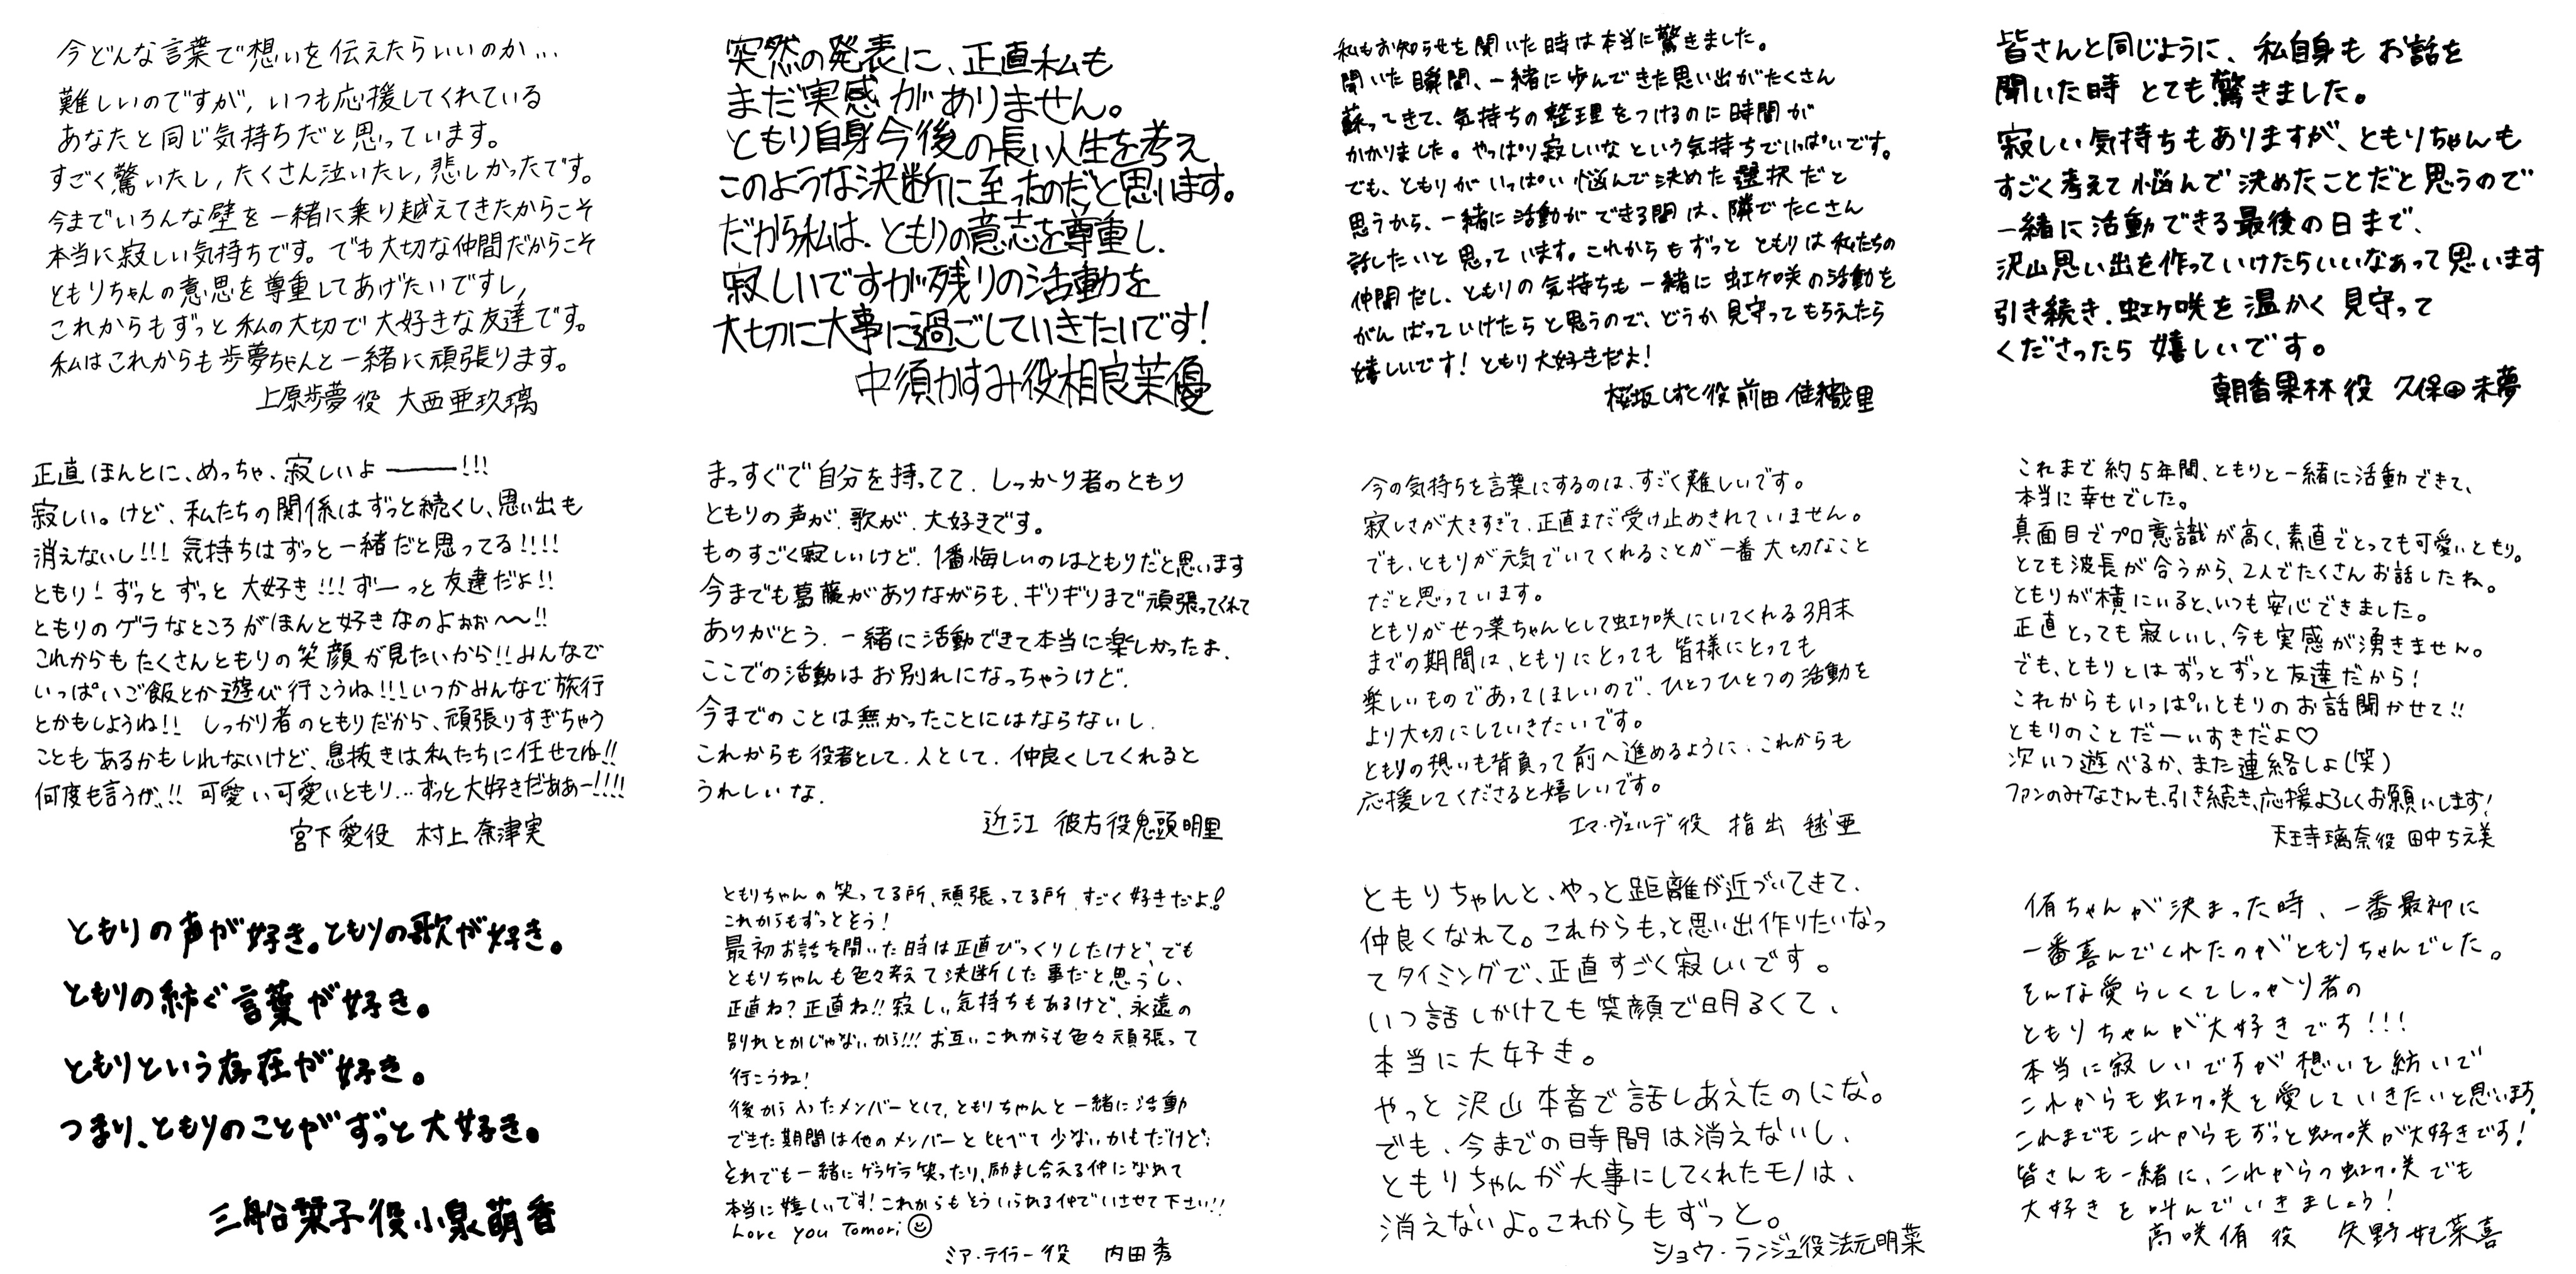 今どんな言葉で想いを伝えたらいいのか…
難しいのですが, いつも応援してくれている
あなたと同じ気持ちだと思っています。
すごく驚いたし, たくさん泣いたし, 悲しかったです。
今までいろんな壁を一緒に乗り越えてきたからこそ
本当に寂しい気持ちです。でも大切な仲間だからこそ
ともりちゃんの意思を尊重してあげたいですし,
これからもずっと私の大切で大好きな友達です。
私はこれからも歩夢ちゃんと一緒に頑張ります。
上原歩夢役 大西亜玖璃
突然の発表に、正直私も
まだ実感がありません。
ともり自身今後の長い人生を考え
このような決断に至ったのだと思います。
だから私は、ともりの意志を尊重し、
寂しいですが残りの活動を
大切に大事に過ごしていきたいです!
中須かすみ役相良茉優
私もお知らせを聞いた時は本当に驚きました。
聞いた瞬間、一緒に歩んできた思い出がたくさん
蘇ってきて、気持ちの整理をつけるのに時間が
かかりました。やっぱり寂しいなという気持ちでいっぱいです。
でも、ともりがいっぱい悩んで決めた選択だと
思うから、一緒に活動ができる間は、隣でたくさん
話したいと思っています。これからもずっとともりは私たちの
仲間だし、ともりの気持ちも一緒に虹ヶ咲の活動を
がんばっていけたらと思うので、どうか見守ってもらえたら
嬉しいです! ともり大好きだよ!
桜坂しずく役 前田佳織里
皆さんと同じように、私自身もお話を
聞いた時とても驚きました。
寂しい気持ちもありますが、ともりちゃんも
すごく考えて悩んで決めたことだと思うので
一緒に活動できる最後の日まで、
沢山思い出を作っていけたらいいなあって思います
引き続き、虹ヶ咲を温かく見守って
くださったら嬉しいです。
朝香果林役 久保田未夢
正直ほんとに、めっちゃ、寂しいよ———!!!
寂しい。けど、私たちの関係はずっと続くし、思い出も
消えないし!!! 気持ちはずっと一緒だと思ってる!!!!
ともり! ずっとずっと大好き!!! ずーっと友達だよ!!
ともりのゲラなところがほんと好きなのよぉぉ〜〜!!
これからもたくさんともりの笑顔が見たいから!! みんなで
いっぱいご飯とか遊び行こうね!!! いつかみんなで旅行
とかもしようね!! しっかり者のともりだから、頑張りすぎちゃう
こともあるかもしれないけど、息抜きは私たちに任せてね!!
何度も言うが、!! 可愛い可愛いともり…ずっと大好きだああー!!!!
宮下愛役 村上奈津実
まっすぐで自分を持ってて、しっかり者のともり
ともりの声が、歌が、大好きです。
ものすごく寂しいけど、1番悔しいのはともりだと思います
今までも葛藤がありながらも、ギリギリまで頑張ってくれて
ありがとう、一緒に活動できて本当に楽しかったよ、
ここでの活動はお別れになっちゃうけど、
今までのことは無かったことにはならないし、
これからも役者として、人として、仲良くしてくれると
うれしいな、
近江 彼方役鬼頭明里
今の気持ちを言葉にするのは、すごく難しいです。
寂しさが大きすぎて、正直まだ受け止めきれていません。
でも、ともりが元気でいてくれることが一番大切なこと
だと思っています。
ともりがせつ菜ちゃんとして虹ヶ咲にいてくれる3月末
までの期間は、ともりにとっても皆様にとっても
楽しいものであってほしいので、ひとつひとつの活動を
より大切にしていきたいです。
ともりの想いも背負って前へ進めるように、これからも
応援してくださると嬉しいです。
エマ・ヴェルデ役 指出毬亜
これまで約5年間、ともりと一緒に活動できて、
本当に幸せでした。
真面目でプロ意識が高く、素直でとっても可愛いともり。
とても波長が合うから、2人でたくさんお話したね。
ともりが横にいると、いつも安心できました。
正直とっても寂しいし、今も実感が湧きません。
でも、ともりとはずっとずっと友達だから!
これからもいっぱいともりのお話聞かせて!!
ともりのことだーいすきだよ♡
次いつ遊べるか、また連絡しよ(笑)
ファンのみなさんも、引き続き、応援よろしくお願いします!
天王寺璃奈役 田中ちえ美
ともりの声が好き。ともりの歌が好き。
ともりの紡ぐ言葉が好き。
ともりという存在が好き。
つまり、ともりのことがずっと大好き。
三船栞子役小泉萌香
ともりちゃんの笑ってる所、頑張ってる所、すごく好きだよ!
これからもずっとそう!
最初お話を聞いた時は正直びっくりしたけど、でも
ともりちゃんも色々考えて決断した事だと思うし、
正直ね?正直ね!! 寂しい気持ちもあるけど、永遠の
別れとかじゃないから!!! お互いこれからも色々頑張って
行こうね!
後から入ったメンバーとして、ともりちゃんと一緒に活動
できた期間は他のメンバーと比べて少ないかもだけど、
それでも一緒にゲラゲラ笑ったり、励まし合える仲になれて
本当に嬉しいです! これからもそういられる仲でいさせて下さい!!
Love you Tomori☺
ミア・テイラー役 内田秀
ともりちゃんと、やっと距離が近づいてきて、
仲良くなれて。これからもっと思い出作りたいなっ
てタイミングで、正直すごく寂しいです。
いつ話しかけても笑顔で明るくて、
本当に大好き。
やっと沢山本音で話しあえたのにな。
でも、今までの時間は消えないし、
ともりちゃんが大事にしてくれたモノは、
消えないよ。これからもずっと。
ショウ・ランジュ役法元明菜
侑ちゃんが決まった時、一番最初に
一番喜んでくれたのがともりちゃんでした。
そんな愛らしくてしっかり者の
ともりちゃんが大好きです!!!
本当に寂しいですが想いを紡いで
これからも虹ヶ咲を愛していきたいと思います。
これまでもこれからもずっと虹ヶ咲が大好きです!
皆さんも一緒に、これからの虹ヶ咲でも
大好きを叫んでいきましょう!
高咲侑役 矢野妃菜喜